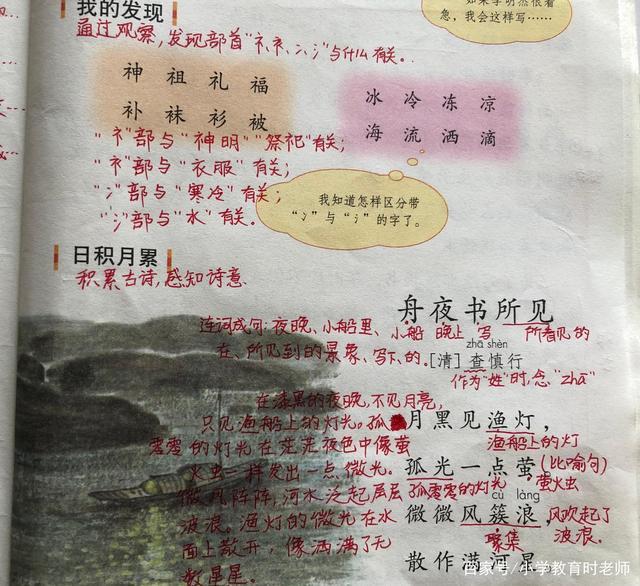 我的发现
如果李明然很着
急，我会这样写……
通过观察，发现部首"礻、衤、冫、氵"与什么有关。
神 祖 礼 福
补 袜 衫 被
冰 冷 冻 凉
海 流 洒 滴
"礻"部与"神明""祭祀"有关；
"衤"部与"衣服"有关；
"冫"部与"寒冷"有关；
"氵"部与"水"有关。
我知道怎样区分带
"冫"与"氵"的字了。
日积月累
积累古诗，感知诗意
舟夜书所见
连词成句：夜晚、小船里、小船 晚上 写 所看见的
在、所见到的景象、写下、的。
zhā shèn
[清] 查慎行
作为"姓"时，念"zhā"
在漆黑的夜晚，不见月亮，
只见渔船上的灯光。孤
零零的灯光在茫茫夜色中像萤
火虫一样发出一点微光。
微风阵阵，河水泛起层层
波浪。渔灯的微光在水
面上散开，像洒满了无
数星星。
月黑见渔灯，
渔船上的灯
孤光一点萤。(比喻句)
孤零零的灯光 萤火虫
cù làng
微微风簇浪，
风吹起了
聚集 波浪。
散作满河星。
百家号/小学教育时老师